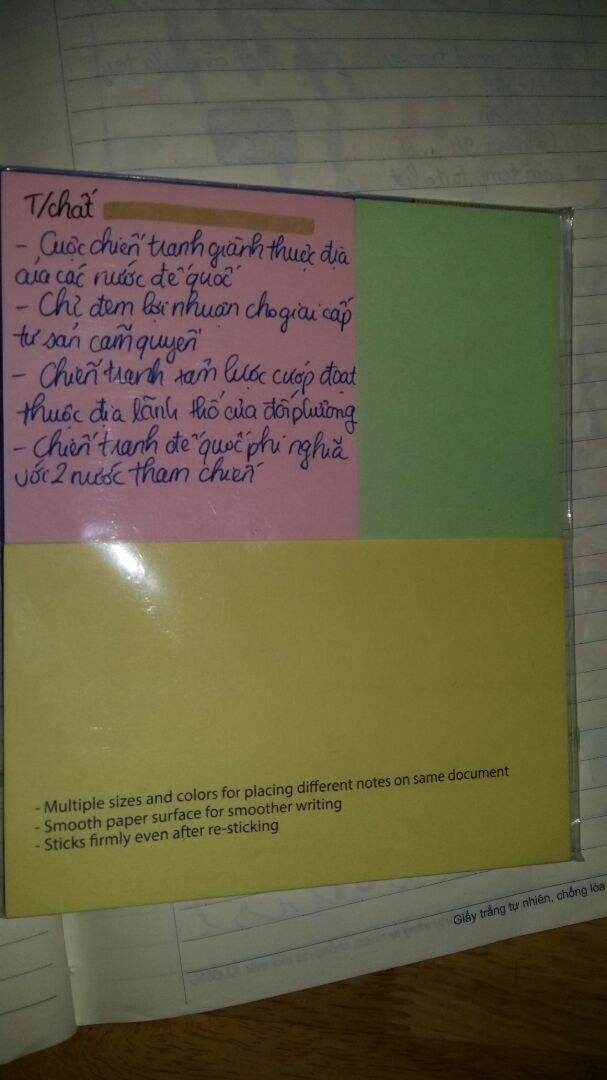 T/chất
- Cuộc chiến tranh giành thuộc địa
của các nước đế quốc
- Chỉ đem lợi nhuận cho giai cấp
tư sản cầm quyền
- Chiến tranh xâm lược cướp đoạt
thuộc địa lãnh thổ của đối phương
- Chiến tranh đế quốc phi nghĩa
với 2 nước tham chiến
- Multiple sizes and colors for placing different notes on same document
- Smooth paper surface for smoother writing
- Sticks firmly even after re-sticking
Giấy trắng tự nhiên, chống lóa